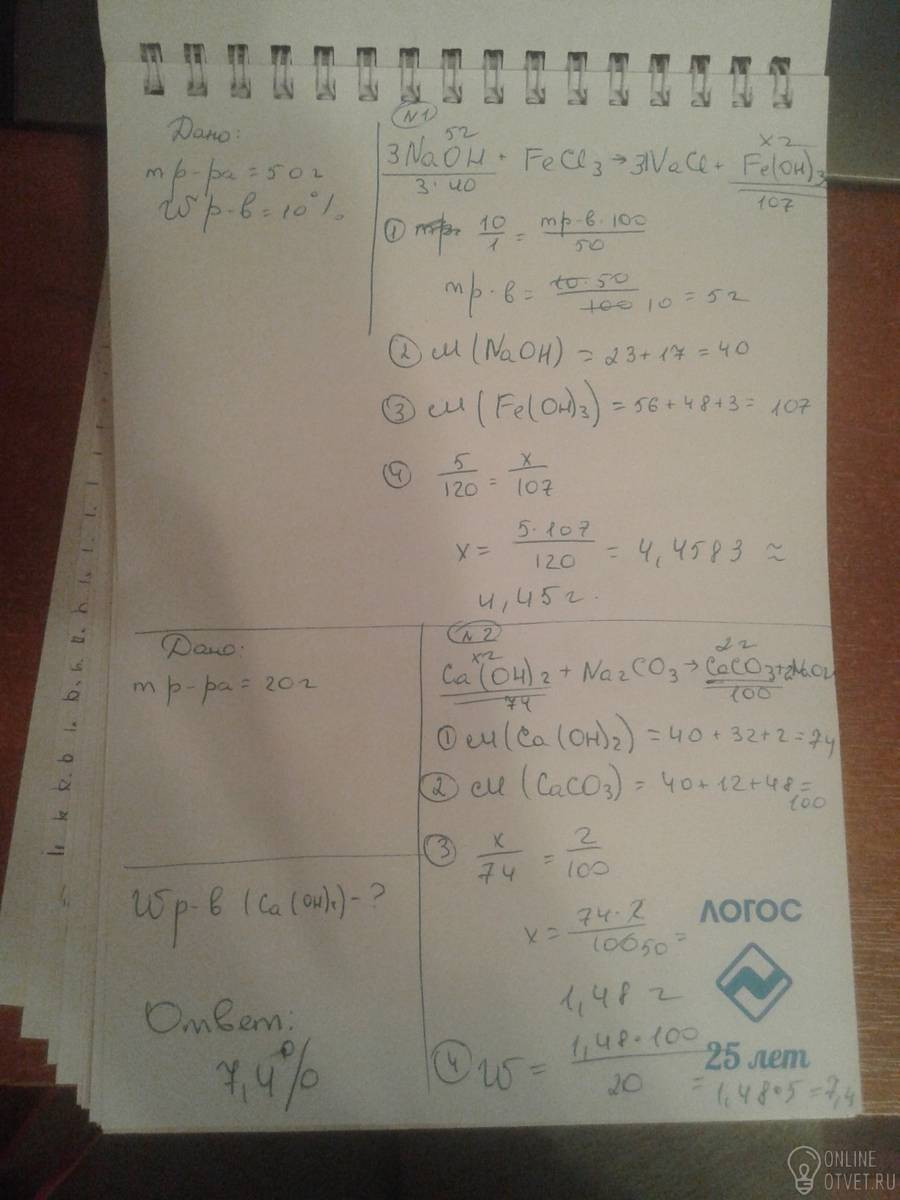 Дано:
m р-ра = 50г
W р-в = 10%
N1
5г
x г
3NaOH + FeCl3 → 3NaCl + Fe(OH)3
3·40
107
① 10/1 = mр-в·100/50
mр-в = 10·50/100 10 = 5г
② M(NaOH) = 23+17 = 40
③ M(Fe(OH)3) = 56+48+3 = 107
④ 5/120 = x/107
x = 5·107/120 = 4,4583 ≈
4,45г.
Дано:
m р-ра = 20г
W р-в (Ca(OH)2) - ?
Ответ:
7,4%
N2
xг
2г
Ca(OH)2 + Na2CO3 → CaCO3 + 2NaOH
74
100
① M(Ca(OH)2) = 40+32+2 = 74
② M(CaCO3) = 40+12+48 =
100
③ x/74 = 2/100
x = 74·2/100 50 =
1,48 г
④ W = 1,48·100/20 = 1,48·5 = 7,4
ЛОГОС
25 лет
ONLINE
OTVET.RU